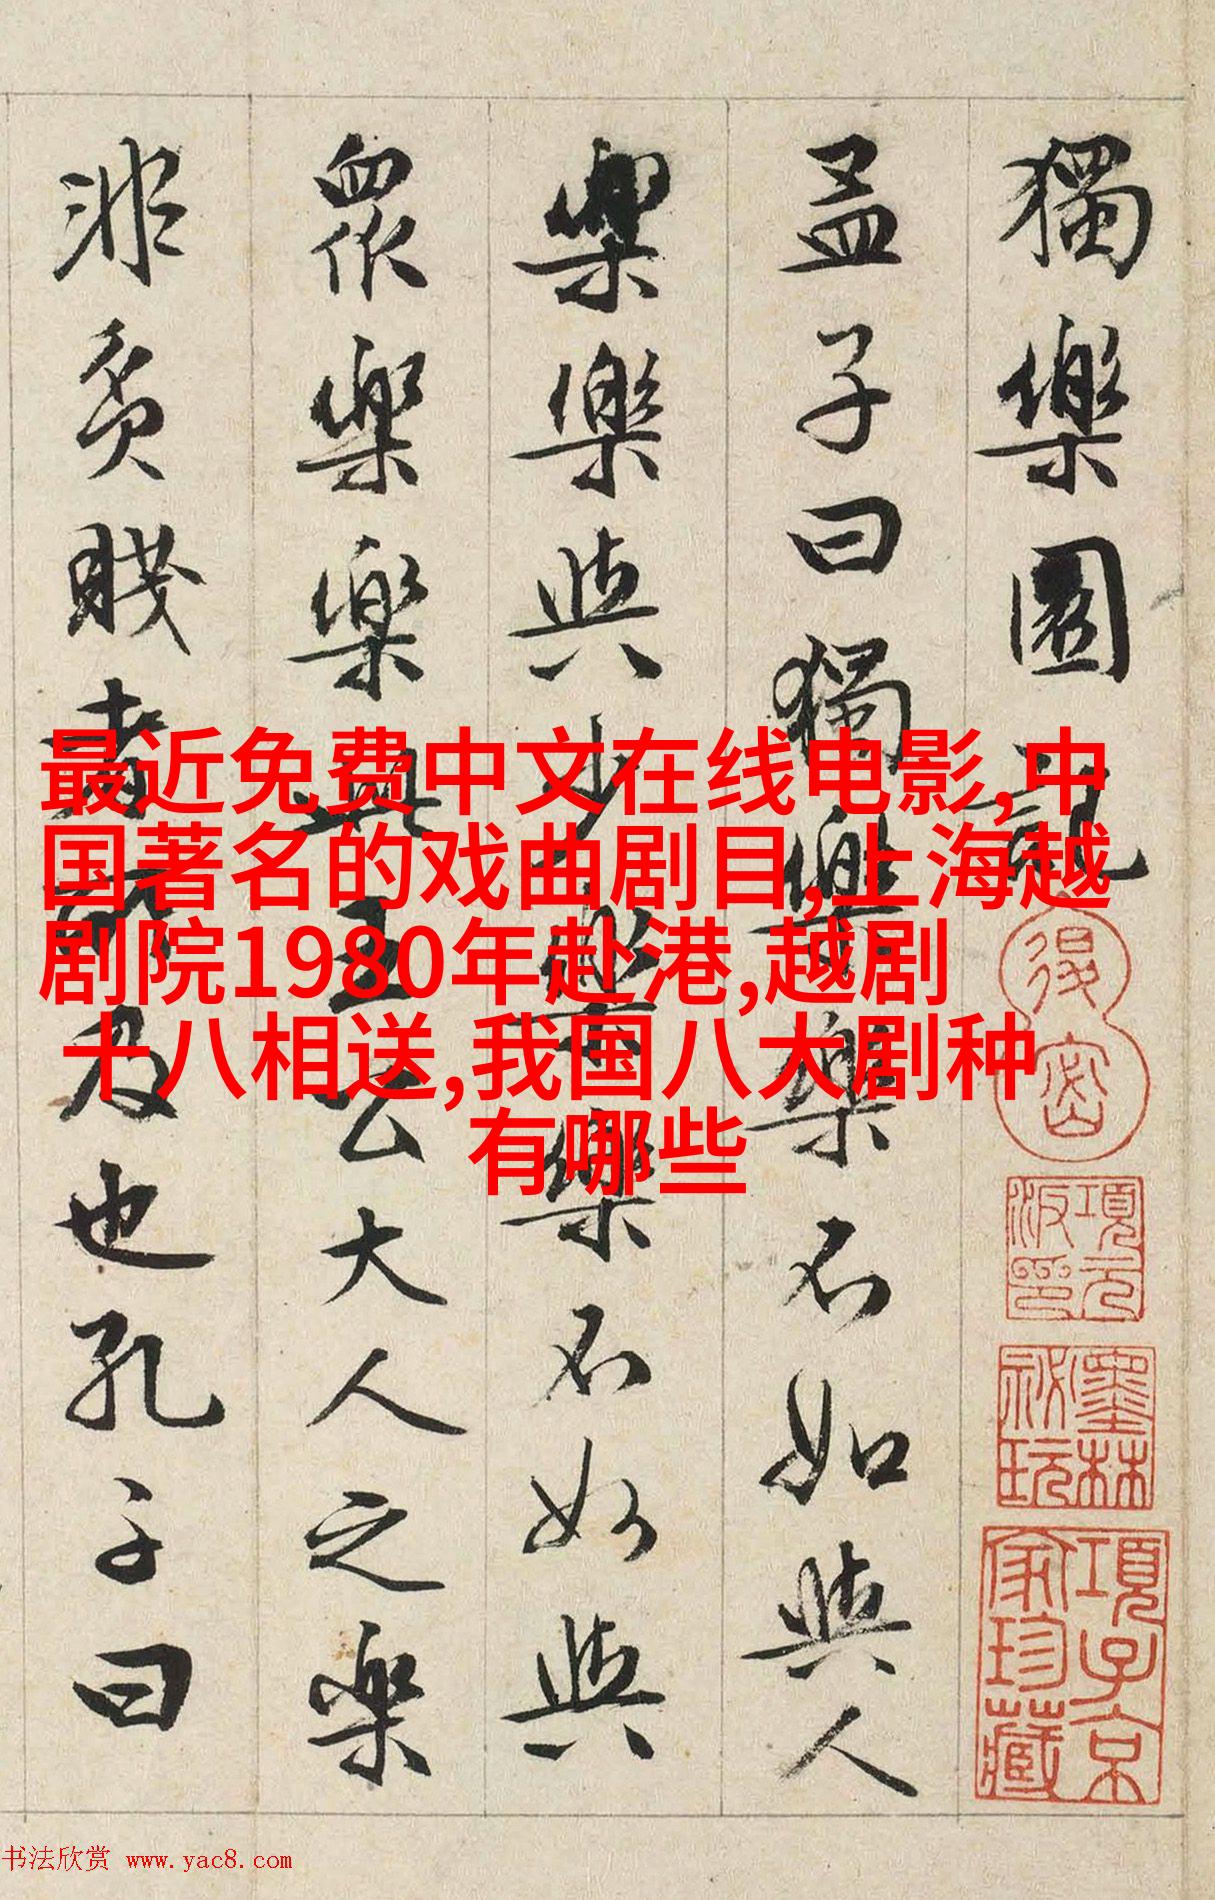 獨樂園記
孟子曰獨樂樂不如與人
樂樂與少樂樂不如與
眾樂樂王公大人之樂
非貧賤者所及也孔子曰
最近免费中文在线电影,中
国著名的戏曲剧目,上海越
剧院1980年赴港,越剧
十八相送,我国八大剧种
有哪些
得密
項元汴印
墨林秘玩
項子京家珍藏
书法欣赏 www.yac8.com